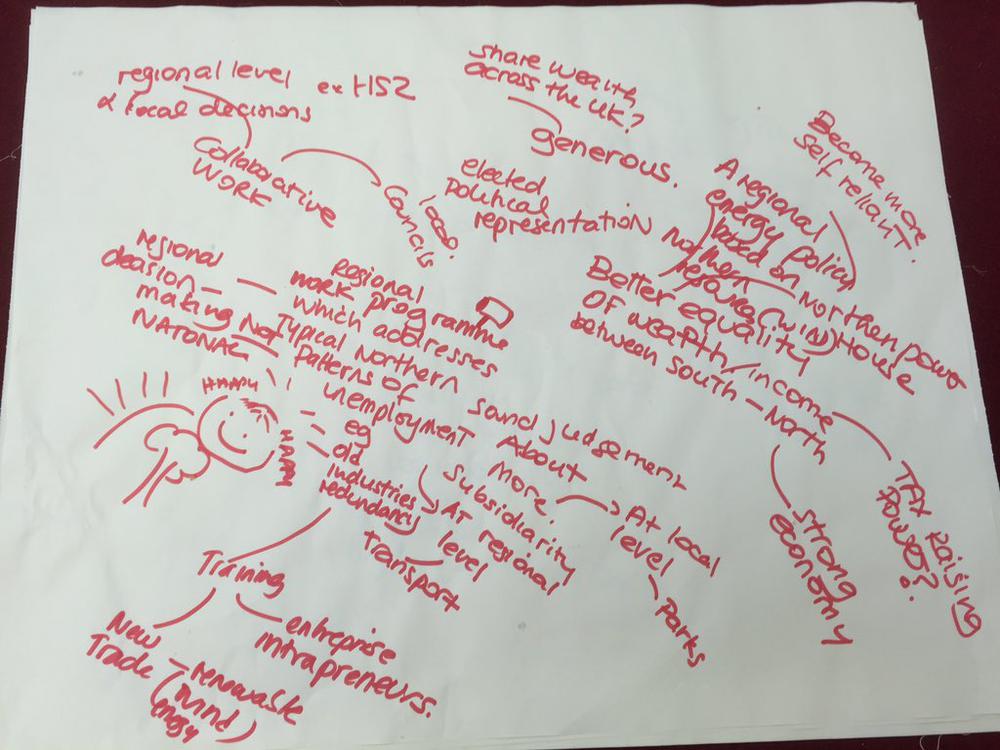 regional level ex HS2
& local decisions
Collaborative
WORK
local
Councils
share wealth
across the UK?
generous.
elected
political
representation
Become more
self reliant.
A regional
energy policy
based on
Northern
(wind)
Northern power
House
Better equality
of wealth/income
between South - North
TAX Raising
Powers?
strong
economy
regional
decision
making Not
NATIONAL
Regional
work programme
which addresses
Typical Northern
Patterns of
unemployment
eg
old
industries
redundancy
HAPPY
HAPPY
sound judgement
About
More.
Subsidiarity
AT regional
level
transport
At local
level
Parks
Training
New
Trade
entreprise
intrapreneurs.
(wind
energy)